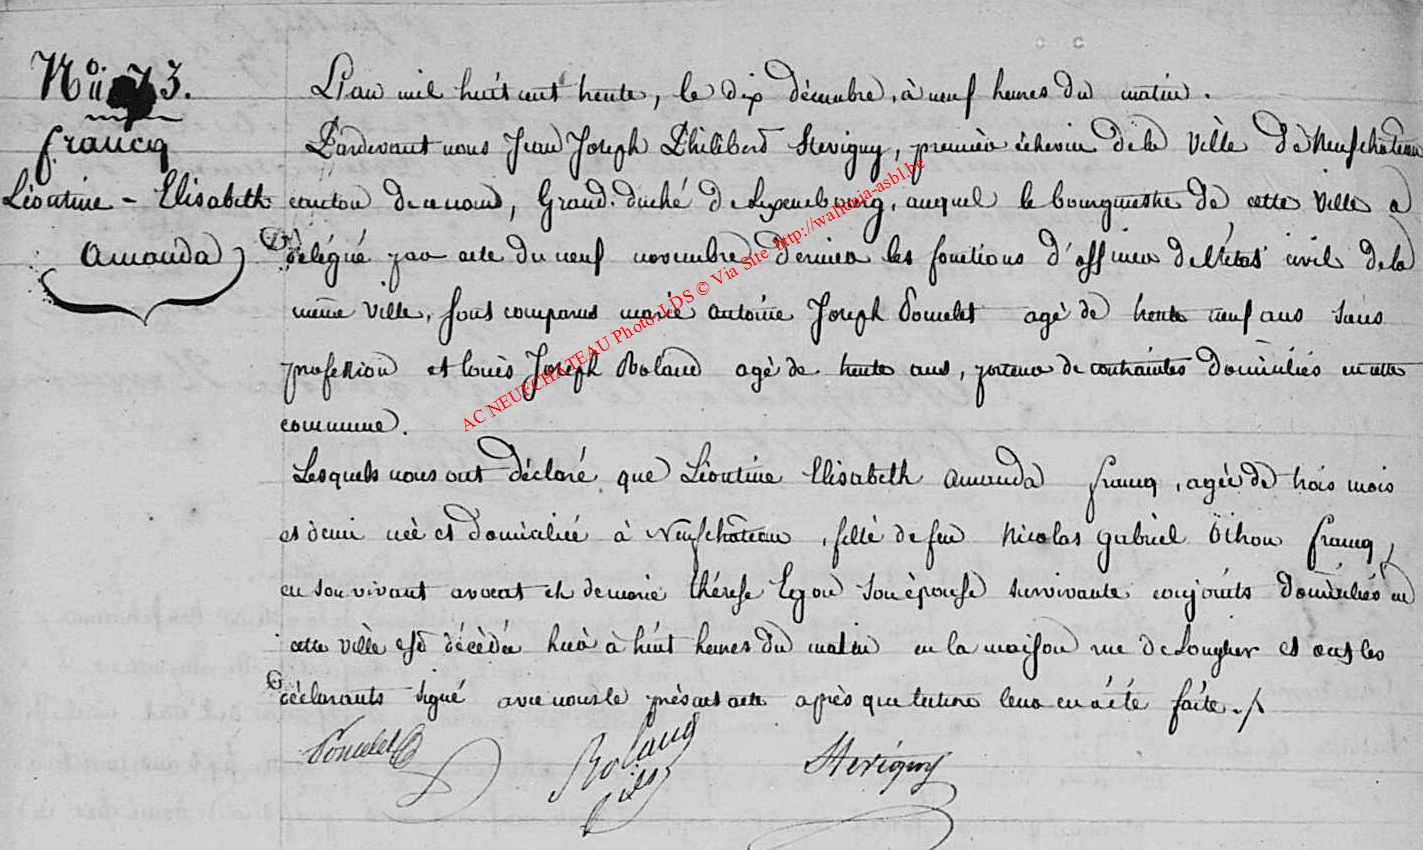 No 73.
francq
Léontine - Elisabeth
Amanda
L'an mil huit cent trente, le dix décembre, à neuf heures du matin.
Pardevant nous Jean Joseph Philibert Stevigny, premier échevin de la ville de Neufchâteau
canton de ce nom, Grand-duché de Luxembourg, auquel le bourgmestre de cette ville a
délégué par acte du neuf novembre dernier les fonctions d'officier de l'état civil de la
même ville, sont comparus marie antoine Joseph Poncelet agé de trente neuf ans sans
profession et louis Joseph Roland agé de trente ans, porteur de contraintes domiciliés en cette
commune.
Lesquels nous ont déclaré que Léontine Elisabeth Amanda francq, agée de trois mois
et demi née et domiciliée à Neufchâteau, fille de feu Nicolas gabriel Othon francq,
en son vivant avocat et de marie thérese son épouse survivante conjoints domiciliés en
cette ville est décédée hier à huit heures du matin en la maison rue de et ont les
déclarants signé avec nous le présent acte après que lecture leur en a été faite./
Poncelet
Roland
Stevigny
AC NEUFCHATEAU Photo: LDS © Via Site http://wallonia-asbl.be